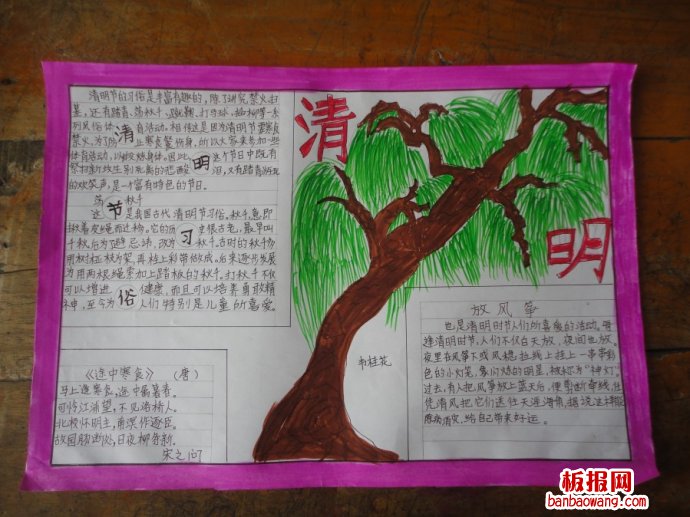 清明节的习俗是丰富有趣的,除了讲究禁火扫
墓,还有踏青、荡秋千、蹴鞠、打马球、插柳等一系
列风俗体育活动。相传这是因为清明节要寒食
禁火,为了防止寒食冷餐伤身,所以大家来参加一些
体育活动,以锻炼身体。因此,这个节日中既有
祭扫新坟生别死离的悲酸泪,又有踏青游玩
的欢笑声,是一个富有特色的节日。
清
明
节
习
俗
荡秋千
这是我国古代清明节习俗。秋千,意即
揪着皮绳而迁移。它的历史很古老,最早叫
千秋,后为了避忌讳,改为秋千。古时的秋千多
用树桠枝为架,再栓上彩带做成。后来逐步发展
为用两根绳索加上踏板的秋千。打秋千不仅
可以增进健康,而且可以培养勇敢精
神,至今为人们特别是儿童的喜爱。
《途中寒食》 (唐)
马上逢寒食,途中属暮春。
可怜江浦望,不见洛桥人。
北极怀明主,南溟作逐臣。
故园肠断处,日夜柳条新。
宋之问
清
明
韦桂花
放风筝
也是清明时节人们所喜爱的活动。每
逢清明时节,人们不仅白天放,夜间也放。
夜里在风筝下或风稳拉线上挂上一串串彩
色的小灯笼,象闪烁的明星,被称为“神灯”。
过去,有人把风筝放上蓝天后,便剪断牵线,任
凭清风把它们送往天涯海角,据说这样能
除病消灾,给自己带来好运。
板报网
banbaowang.com